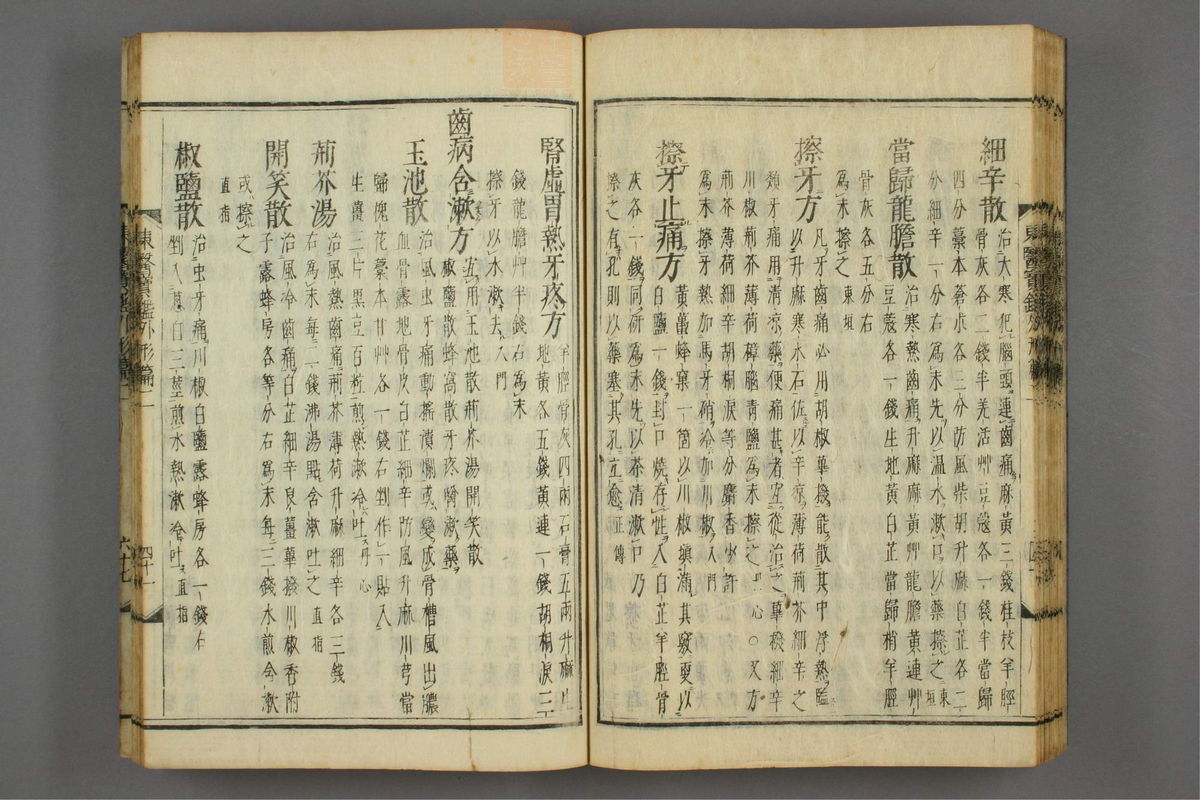 細辛散 治大寒犯腦頭連齒痛麻黃三錢桂枝羊脛
骨灰各二錢半羌活艸豆蔻各一錢半當歸
四分藁本蒼朮各三分防風柴胡升麻白芷各二
分細辛一分右爲末先以温水漱口以藥擦之東垣
當歸龍膽散 治寒熱齒痛升麻麻黃艸龍膽黃連艸
豆蔻各一錢生地黃白芷當歸梢羊脛
骨灰各五分右
爲末擦之東垣
擦牙方 凡牙齒痛必用胡椒蓽撥能散其中浮熱監
以升麻寒水石佐以辛凉薄荷荊芥細辛之
類牙痛用清凉藥便痛甚者宜從治之蓽撥細辛
川椒荊芥薄荷樟腦青鹽爲末擦之丹心○又方
荊芥薄荷細辛胡桐淚等分麝香少許
爲末擦牙熱加馬牙硝冷加川椒入門
擦牙止痛方 黃蠟蜂窠一箇以川椒塡滿其竅更以
白鹽一錢封口燒存性入白芷羊脛骨
灰各一錢同研爲末先以茶清漱口乃
擦之有孔則以藥塞其孔立愈正傳
腎虛胃熱牙疼方 羊脛骨灰四兩石膏五兩升麻生
地黃各五錢黃連一錢胡桐淚三
錢龍膽艸半錢右爲末
擦牙以水漱去入門
齒病含漱方 宜用玉池散荊芥湯開笑散
椒鹽散蜂窩散牙疼噙漱藥
玉池散 治風虫牙痛動搖潰爛或變成骨槽風出濃
血骨露地骨皮白芷細辛防風升麻川芎當
歸槐花藁本甘艸各一錢右剉作一貼入
生薑三片黑豆百粒煎熱漱冷吐丹心
荊芥湯 治風熱齒痛荊芥薄荷升麻細辛各三錢
右爲末每二錢沸湯點含漱吐之直指
開笑散 治風冷齒痛白芷細辛良薑蓽撥川椒香附
子露蜂房各等分右爲末每三錢水煎含漱
或擦之
直指
椒鹽散 治虫牙痛川椒白鹽露蜂房各一錢右
剉入葱白三莖煎水熱漱冷吐直指
東醫寶鑑外形篇二
四十一